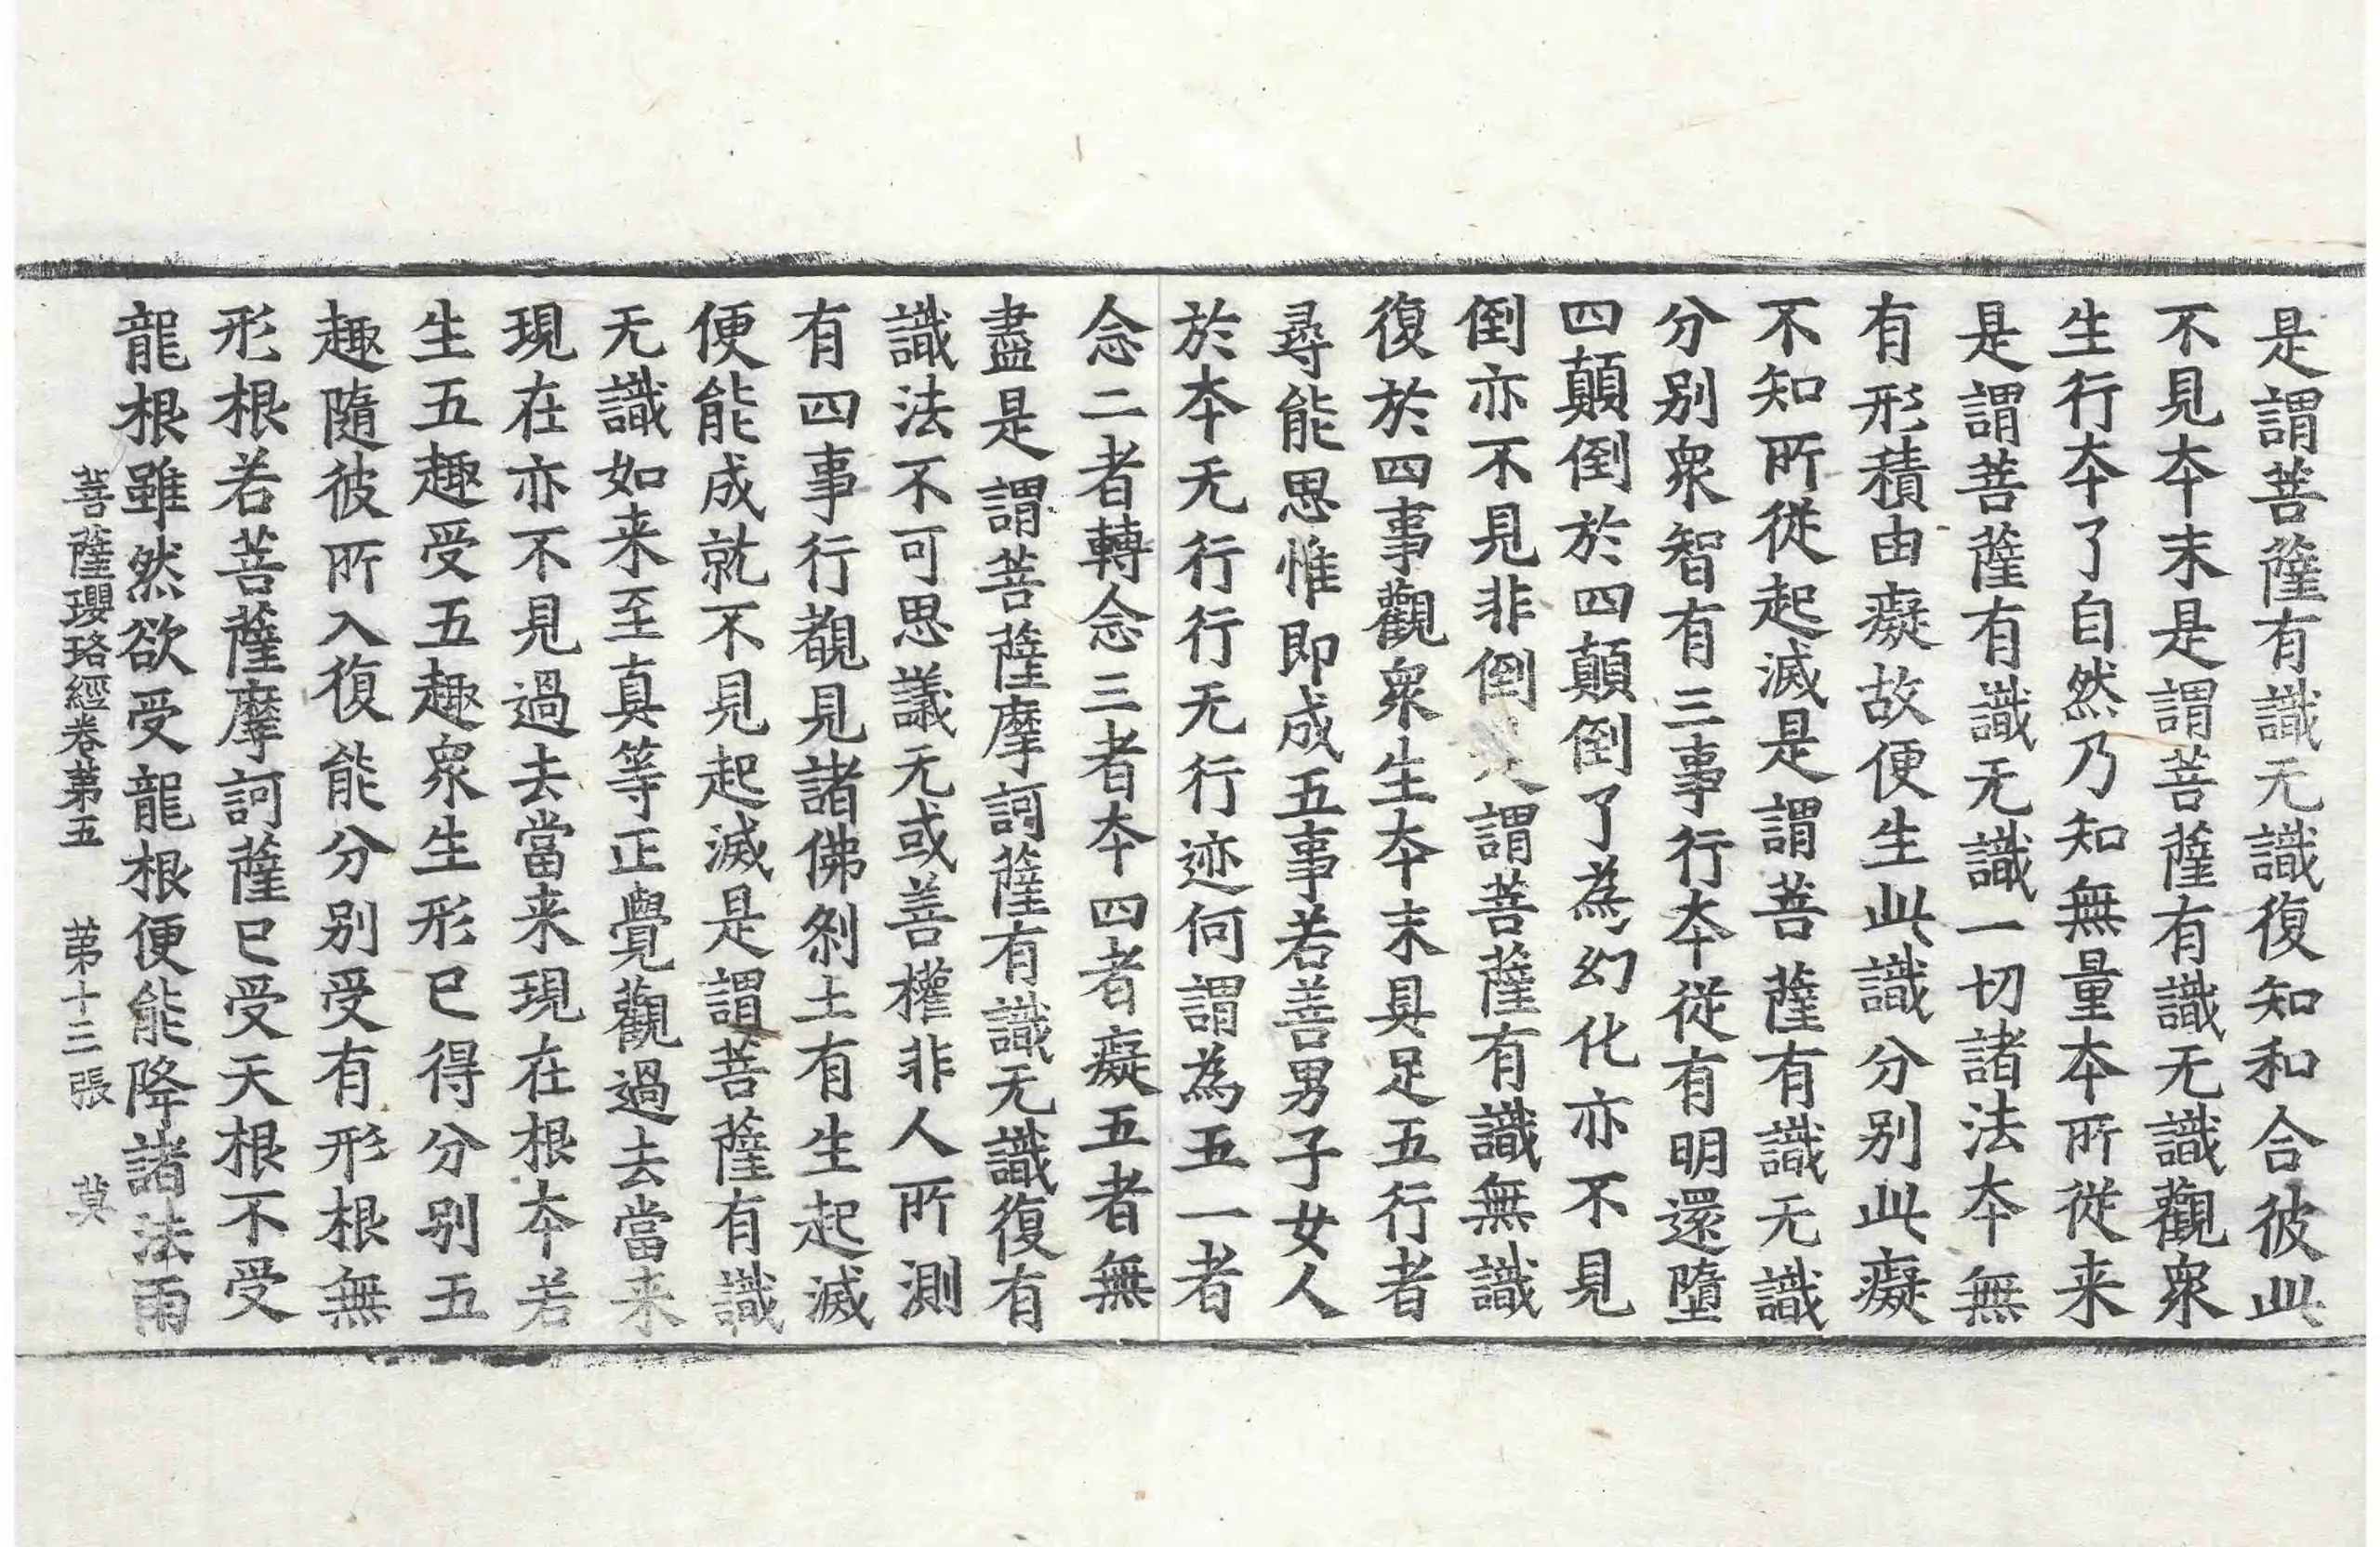 是謂菩薩有識无識復知和合彼此
不見本末是謂菩薩有識无識觀衆
生行本了自然乃知無量本所從来
是謂菩薩有識无識一切諸法本無
有形積由癡故便生此識分別此癡
不知所從起滅是謂菩薩有識无識
分別衆智有三事行本從有明還墮
四顛倒於四顛倒了為幻化亦不見
倒亦不見非倒謂菩薩有識無識
復於四事觀衆生本末具足五行者
尋能思惟即成五事若善男子女人
於本无行行无行迹何謂為五一者
念二者轉念三者本四者癡五者無
盡是謂菩薩摩訶薩有識无識復有
識法不可思議无或善權非人所測
有四事行觀見諸佛剎土有生起滅
便能成就不見起滅是謂菩薩有識
无識如来至真等正覺觀過去當来
現在亦不見過去當来現在根本若
生五趣受五趣衆生形已得分別五
趣隨彼所入復能分別受有形根無
形根若菩薩摩訶薩已受天根不受
龍根雖然欲受龍根便能降諸法雨
菩薩瓔珞經卷苐五 苐十三張 莫